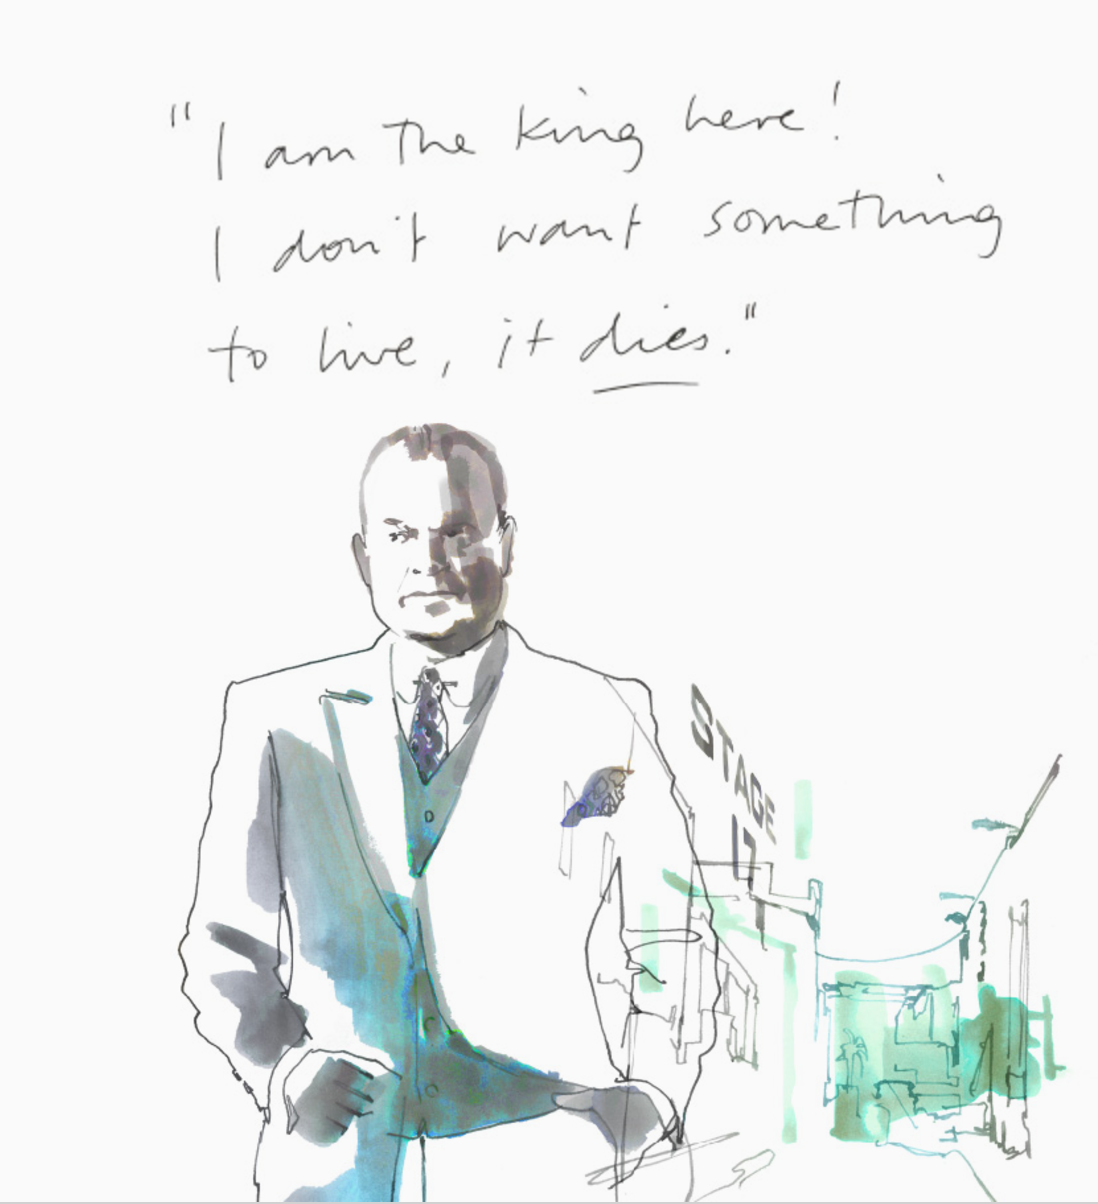 "I am the king here!
I don't want something
to live, it dies."
STAGE
17